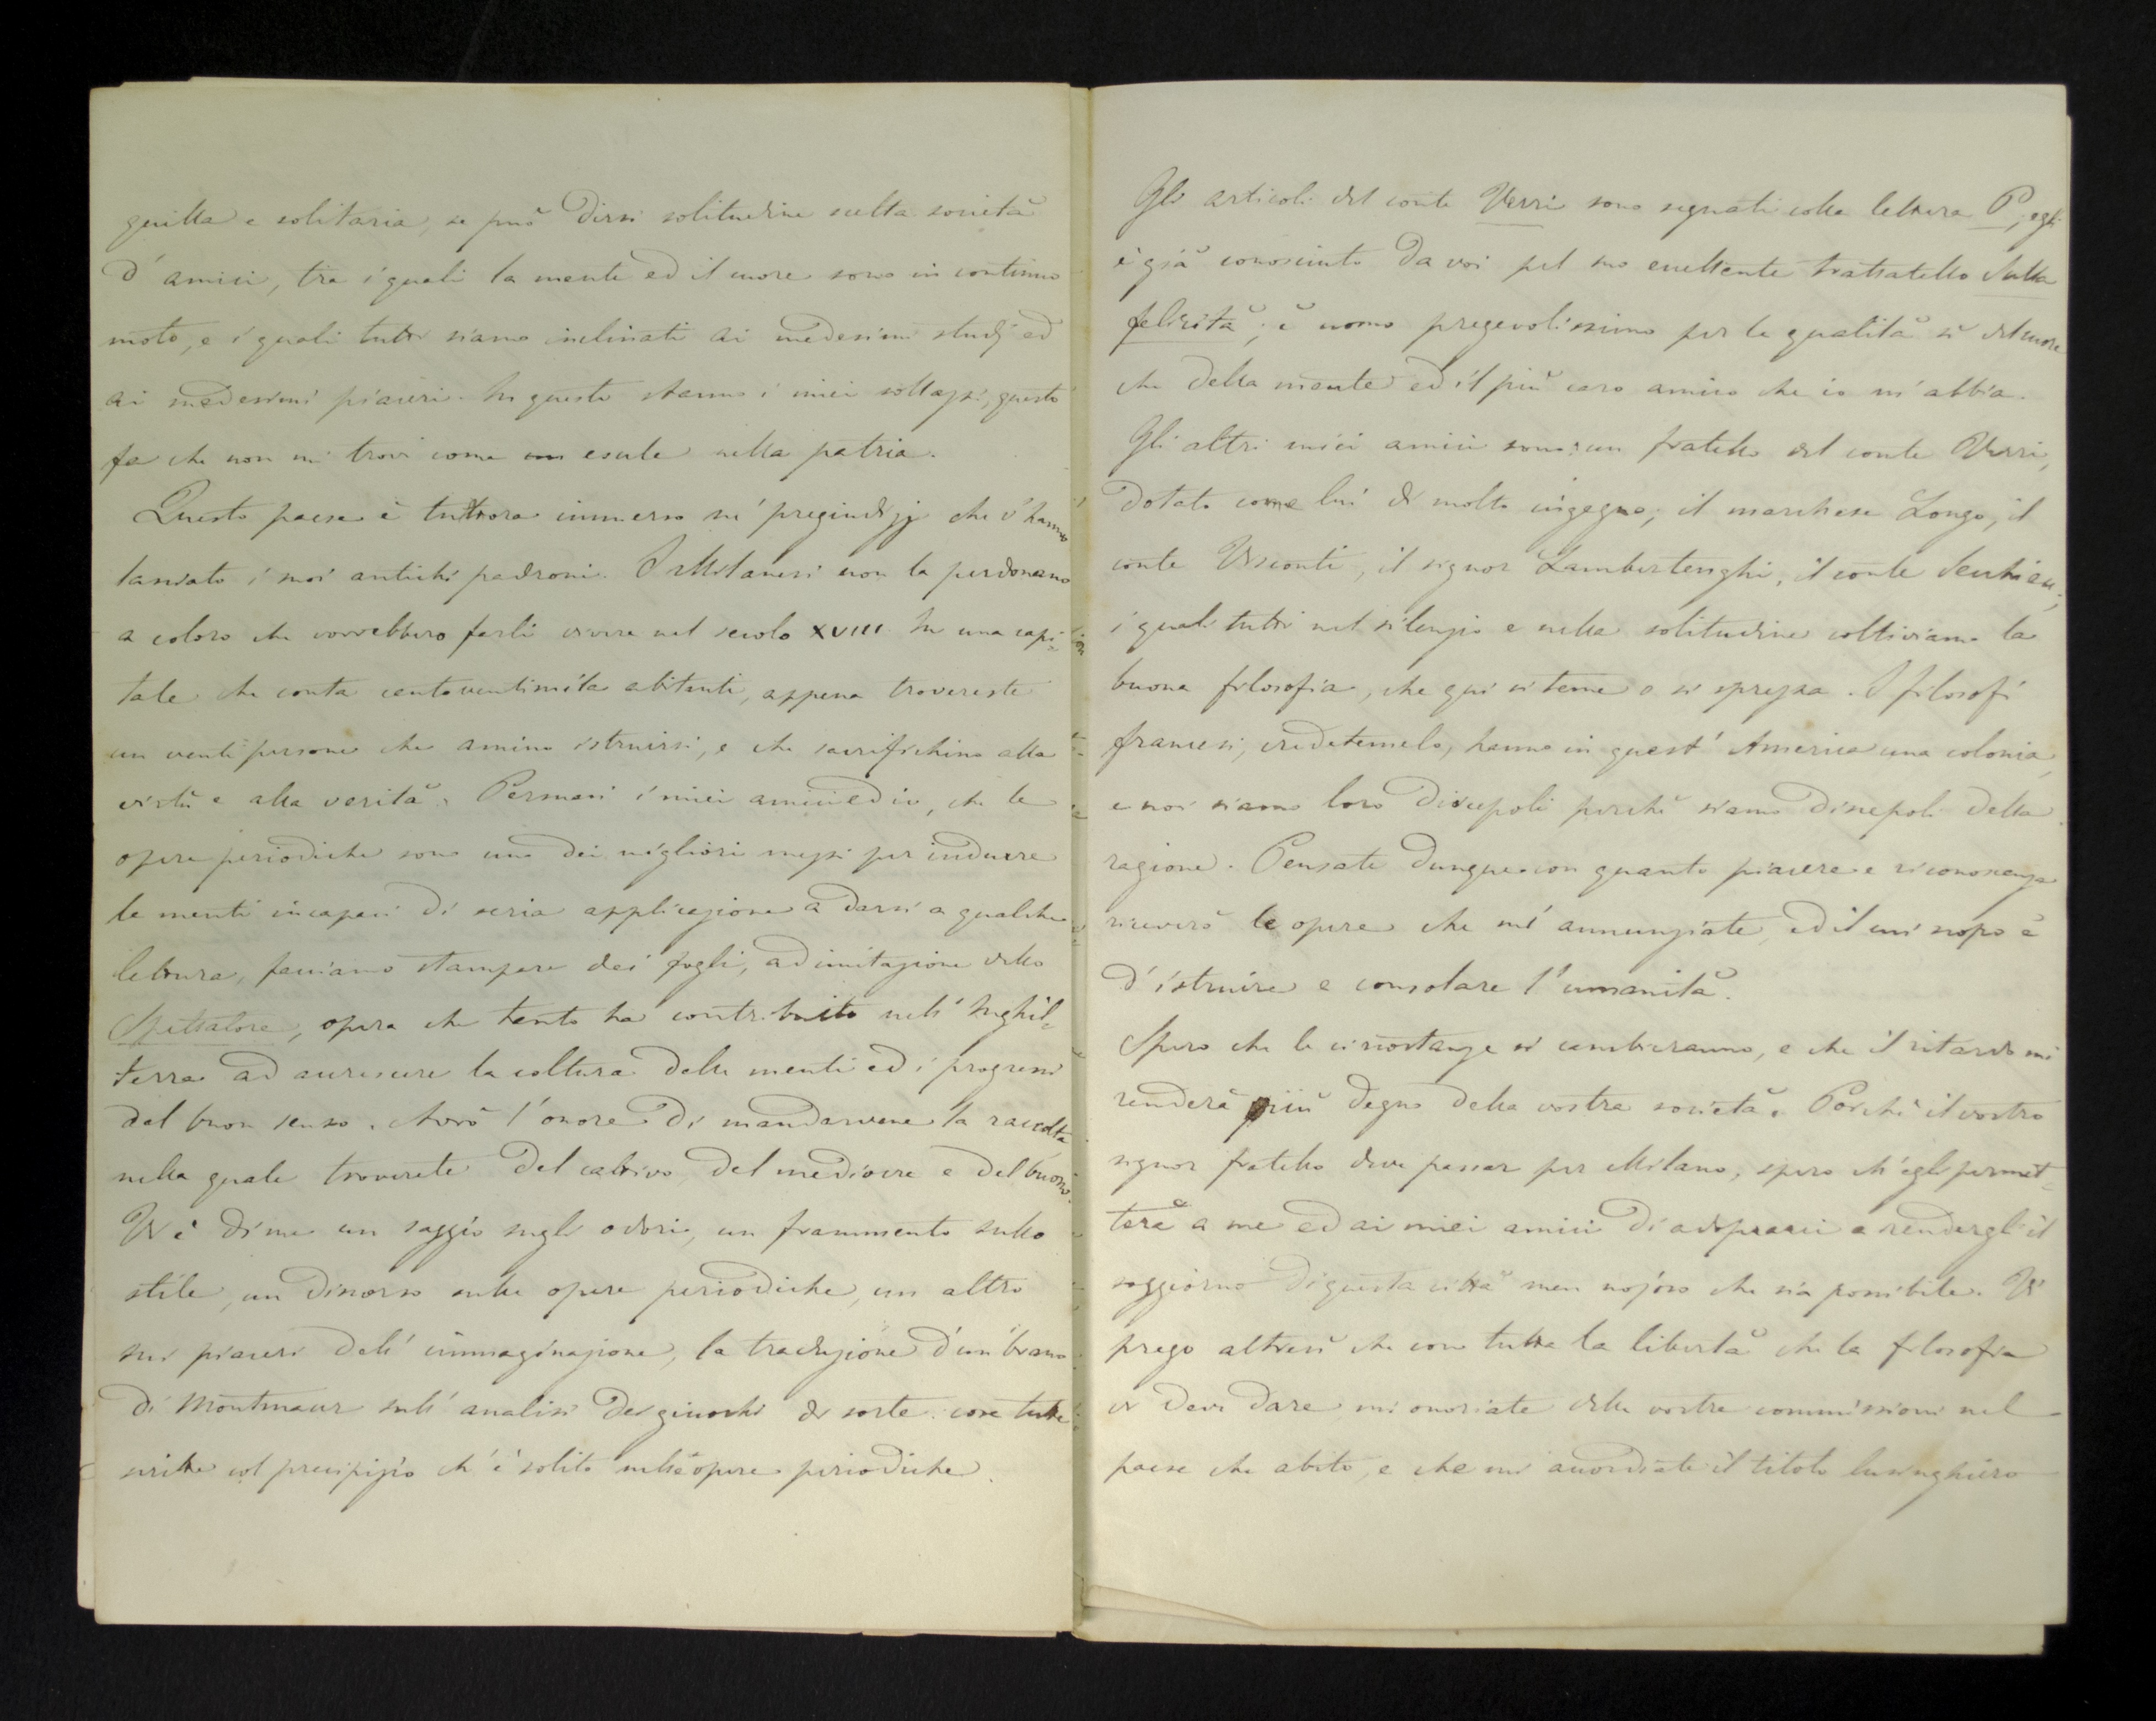 quilla e solitaria, se può dirsi solitudine scelta società
d'amici, tra i quali la mente ed il cuore sono in continuo
moto, e i quali tutti siamo inclinati ai medesimi studj ed
ai medesimi piaceri. In questo stanno i miei sollazzi, questo
fa che non mi trovi come un esule nella patria.
Questo paese è tuttora immerso ne' pregiudizj che v'hanno
lasciato i suoi antichi padroni. I Milanesi non la perdonano
a coloro che vorrebbero farli vivere nel secolo XVIII. In una capi-
tale che conta centoventimila abitanti, appena trovereste
un venti persone che amino istruirsi, e che sacrifichino alla
virtù e alla verità. Persuasi i miei amici ed io, che le
opere periodiche sono uno dei migliori mezzi per indurre
le menti incapaci di seria applicazione a darsi a qualche
lettura, facciamo stampare dei fogli, ad imitazione dello
Spettatore, opera che tanto ha contribuito nell'Inghil-
terra ad accrescere la coltura delle menti ed i progressi
del buon senso. Avrò l'onore di mandarvene la raccolta
nella quale troverete del cattivo, del mediocre e del buono.
Vi è di me un saggio sugli odori, un frammento sullo
stile, un discorso sulle opere periodiche, un altro
sui piaceri dell'immaginazione, la traduzione d'un brano
di Montmaur sull'analisi dei giuochi di sorte: cose tutte
scritte col precipizio ch'è solito nelle opere periodiche.
Gli articoli del conte Verri sono segnati colla lettera P; egli
è già conosciuto da voi pel suo eccellente trattatello Sulla
felicità; è uomo pregevolissimo per le qualità sì del cuore
che della mente ed il più caro amico che io m'abbia.
Gli altri miei amici sono: un fratello del conte Verri,
dotato come lui di molto ingegno; il marchese Longo, il
conte Visconti, il signor Lambertenghi, il conte Secchi ecc;
i quali tutti nel silenzio e nella solitudine coltiviamo la
buona filosofia, che qui si teme o si sprezza. I filosofi
francesi, credetemelo, hanno in quest'America una colonia,
e noi siamo loro discepoli perchè siamo discepoli della
ragione. Pensate dunque con quanto piacere e riconoscenza
riceverò le opere che mi annunziate, ed il cui scopo è
d'istruire e consolare l'umanità.
Spero che le circostanze si cambieranno, e che il ritardo mi
renderà più degno della vostra società. Poichè il vostro
signor fratello deve passar per Milano, spero ch'egli permet-
terà a me ed ai miei amici di adoprarci a rendergli il
soggiorno di questa città men nojoso che sia possibile. Vi
prego altresì che con tutta la libertà che la filosofia
vi deve dare, mi onoriate delle vostre commissioni nel
paese che abito, e che mi accordiate il titolo lusinghiero